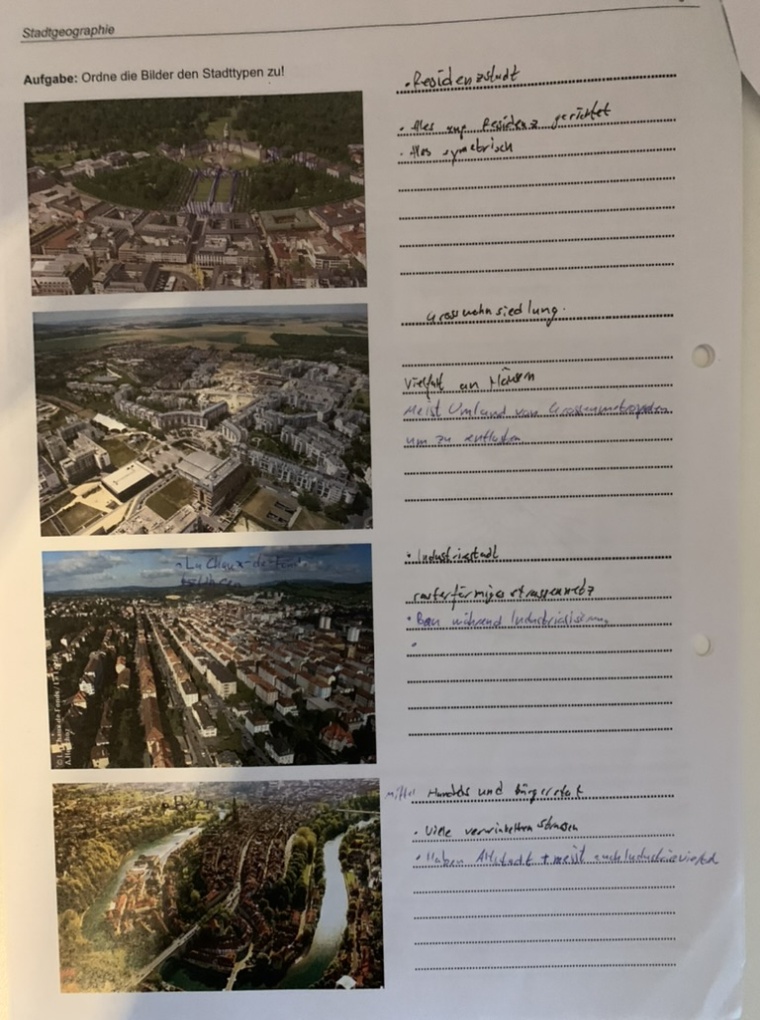 Stadtgeographie
Aufgabe: Ordne die Bilder den Stadttypen zu!
• Residenzstadt
• Alles auf Residenz gerichtet
• Alles symetrisch
Grosswohnsiedlung.
Vielfalt an
Meist Umland von
um zu entlasten
• La Chaux-de-Fonds
• Industriestadt
rasterförmiges strassennetz
• Bau während Industrialisierung
•
Bern
Mittel Handels und bürgerstat
• Viele verwinkelten strassen
• Haben Altstadt + meist auch Industrieviertel